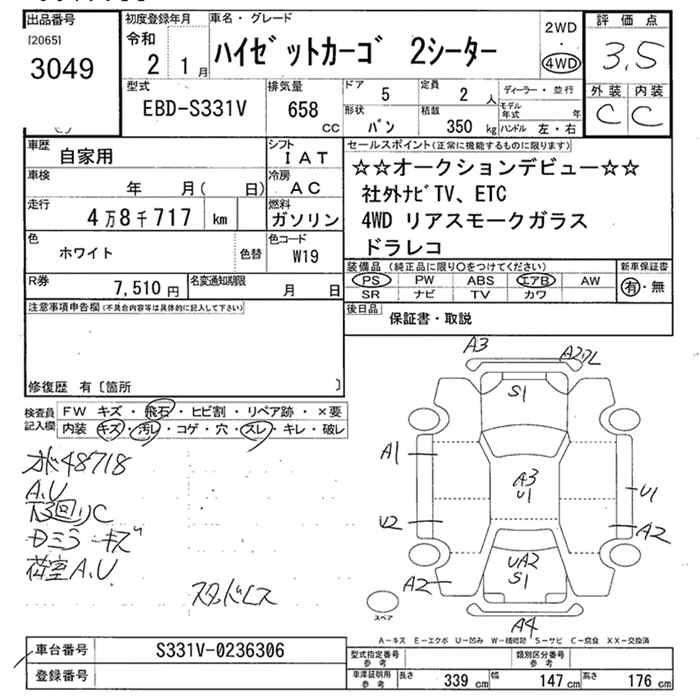 出品番号
[2065]
3049
初度登録年月
令和
2 1月
車名・グレード
ハイゼットカーゴ 2シーター
2WD
・
4WD
評価点
3.5
外装 内装
C C
型式
EBD-S331V
排気量
658 CC
ドア
5
定員
2 人
形状
バン
積載
350 kg
ディーラー・並行
モデル年式 年
ハンドル 左・右
車歴
自家用
シフト
IAT
車検
年 月( 日)
冷房
AC
走行
4万8千717 km
燃料
ガソリン
色
ホワイト
色替
色コード
W19
R券
7,510 円
名変通知期限
月 日
セールスポイント(正常に機能するものに限ります)
☆☆オークションデビュー☆☆
社外ナビTV、ETC
4WD リアスモークガラス
ドラレコ
装備品 (純正品に限り○をつけてください)
新車保証書
PS PW ABS エアB AW
SR ナビ TV カワ
有・無
後日品
保証書・取説
注意事項申告欄(不具合内容等は具体的に記入して下さい)
修復歴 有〔箇所 〕
検査員記入欄
FW キズ・飛石・ヒビ割・リペア跡・×要
内装 キズ・汚レ・コゲ・穴・スレ・キレ・破レ
48718
A,U
Dミラ キズ
荷室A,U
スタッドレス
A3
S1
A1
A3
U1
U2
U1
A2
UA2
S1
A2
A4
スペア
A-キズ E-エクボ U-凹み W-補修跡 S-サビ C-腐食 XX-交換済
車台番号
S331V-0236306
登録番号
型式指定番号
参考
類別区分番号
参考
車庫証明用
参考
長さ 339 cm 幅 147 cm 高さ 176 cm